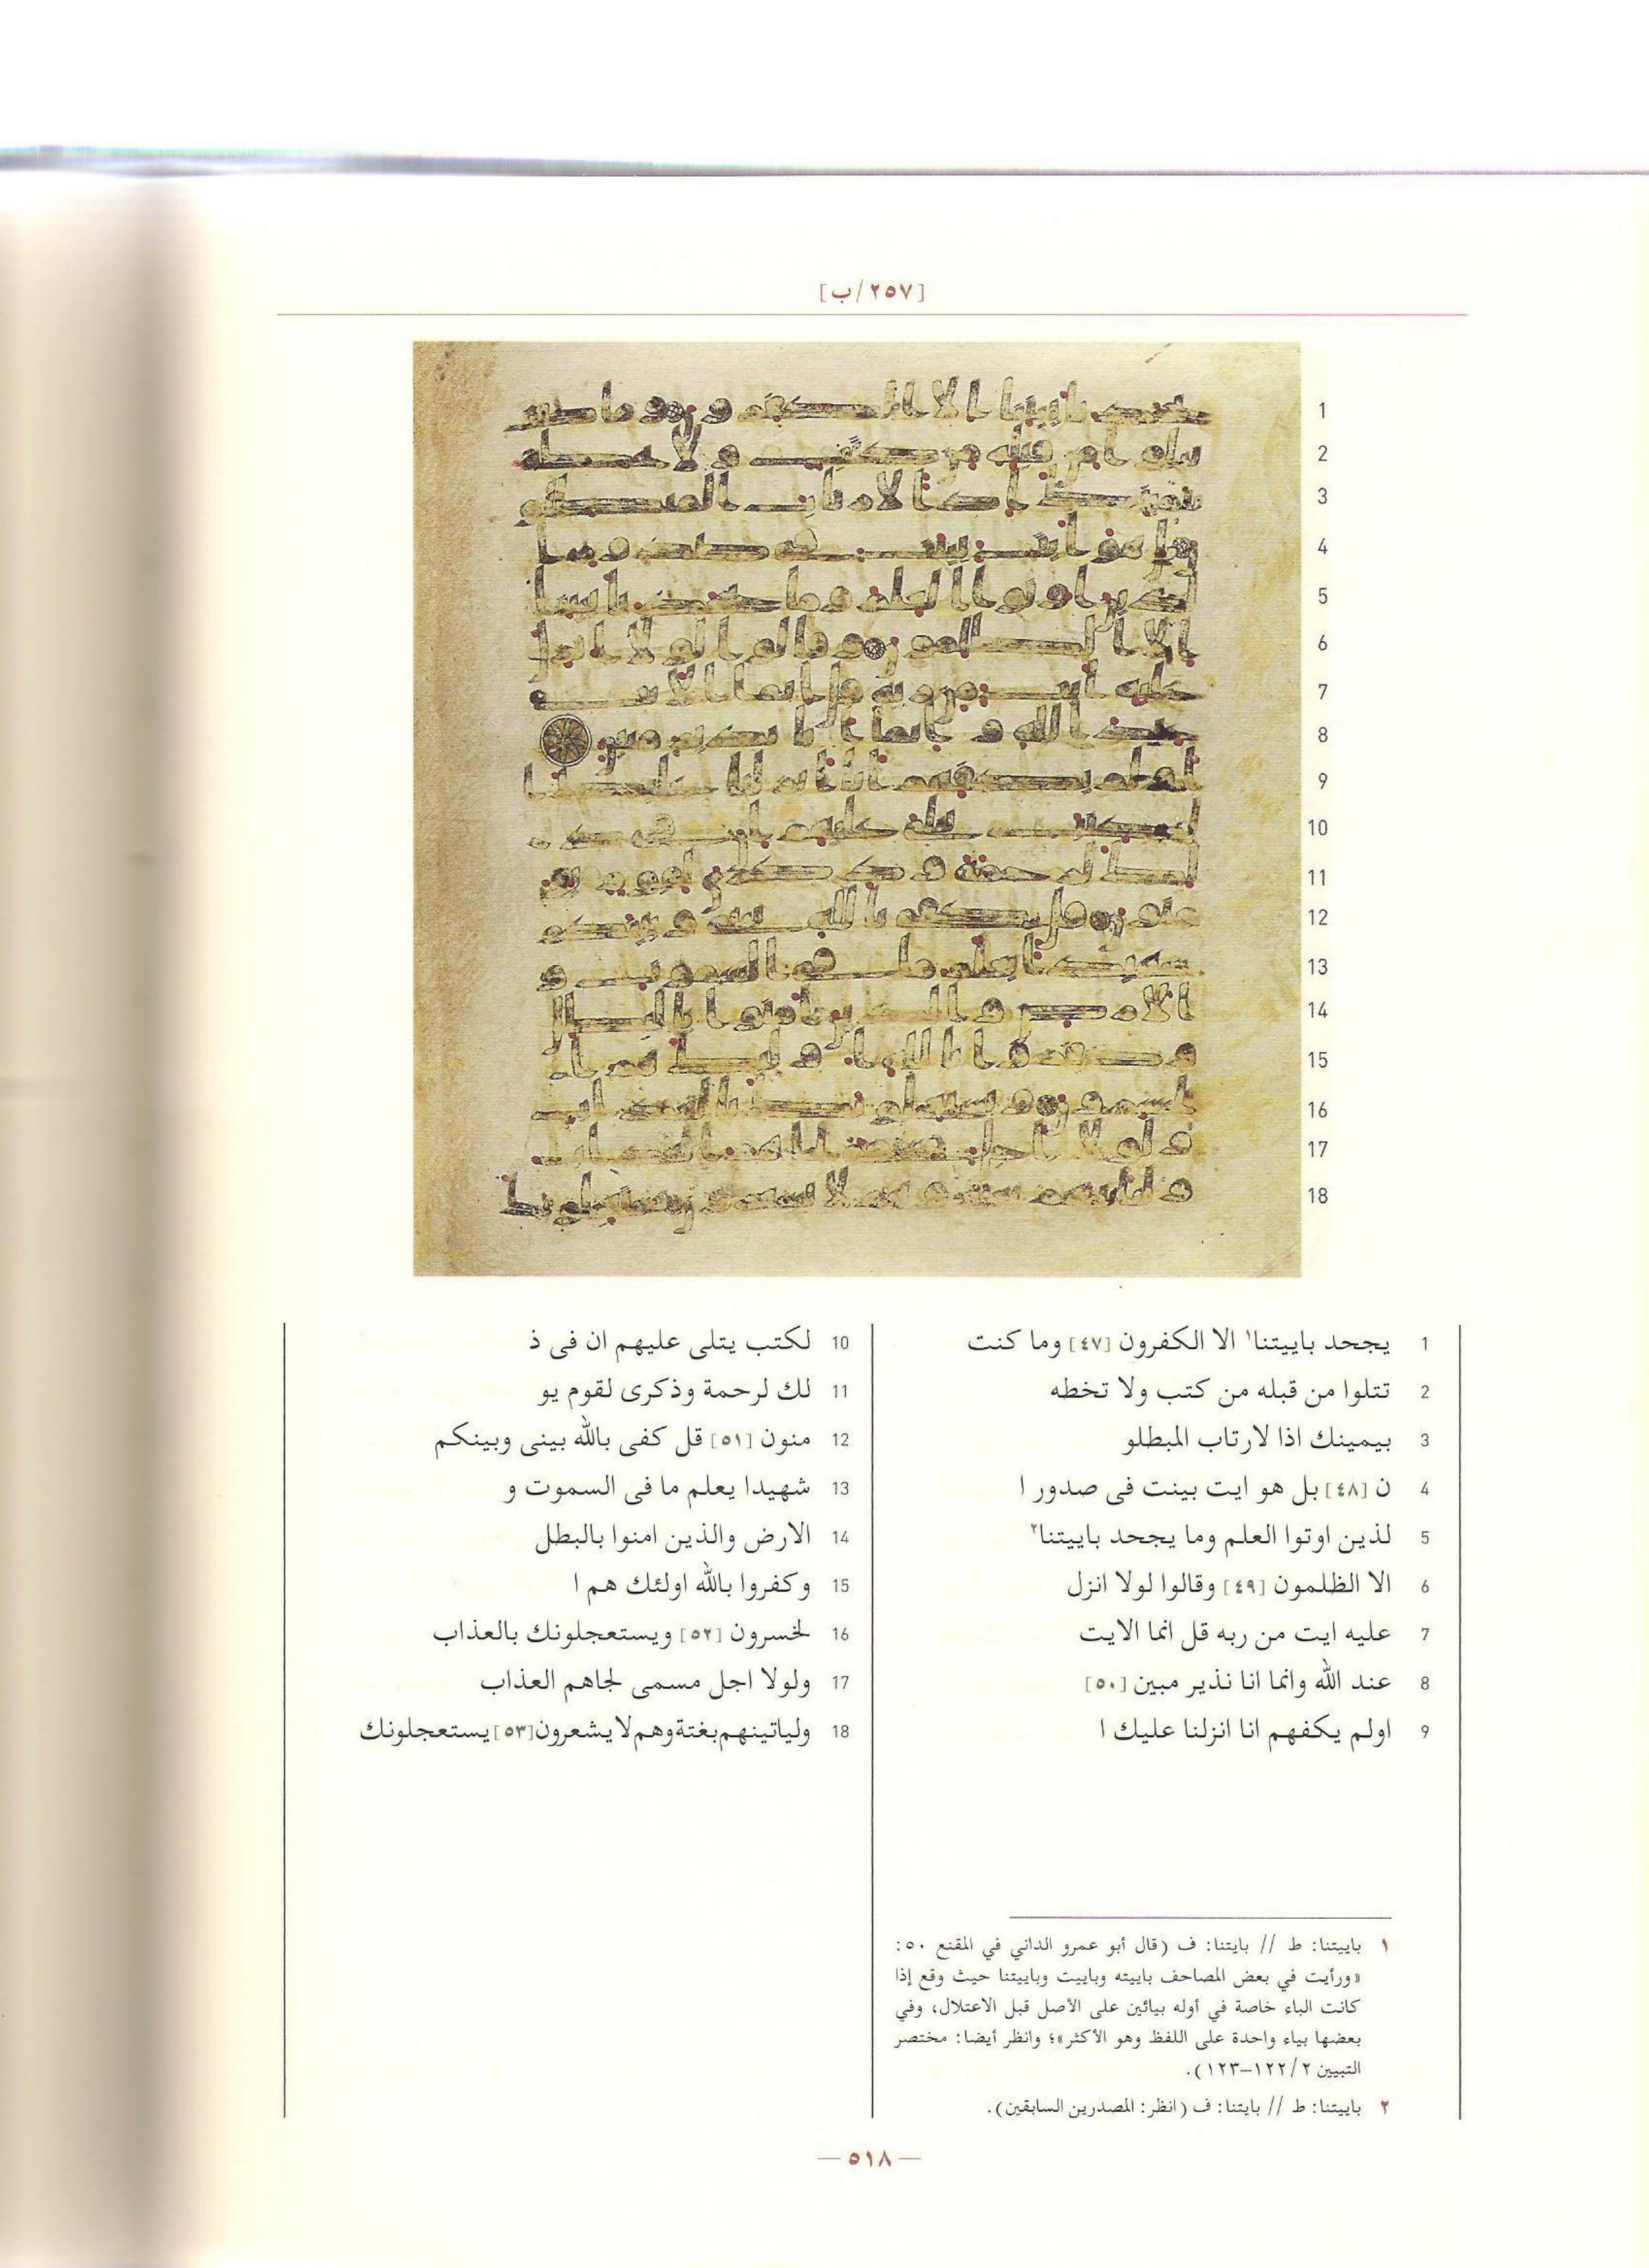 [٢٥٧/ب]
1
2
3
4
5
6
7
8
9
10
11
12
13
14
15
16
17
18
1 يجحد باييتنا١ الا الكفرون [٤٧] وما كنت
2 تتلوا من قبله من كتب ولا تخطه
3 بيمينك اذا لارتاب المبطلو
4 ن [٤٨] بل هو ايت بينت فى صدور ا
5 لذين اوتوا العلم وما يجحد باييتنا٢
6 الا الظلمون [٤٩] وقالوا لولا انزل
7 عليه ايت من ربه قل انما الايت
8 عند الله وانما انا نذير مبين [٥٠]
9 اولم يكفهم انا انزلنا عليك ا
10 لكتب يتلى عليهم ان فى ذ
11 لك لرحمة وذكرى لقوم يو
12 منون [٥١] قل كفى بالله بينى وبينكم
13 شهيدا يعلم ما فى السموت و
14 الارض والذين امنوا بالبطل
15 وكفروا بالله اولئك هم ا
16 لخسرون [٥٢] ويستعجلونك بالعذاب
17 ولولا اجل مسمى لجاهم العذاب
18 ولياتينهم بغتة وهم لا يشعرون [٥٣] يستعجلونك
١ باييتنا: ط // بايتنا: ف (قال أبو عمرو الداني في المقنع ٥٠:
«ورأيت في بعض المصاحف باييته وباييت وباييتنا حيث وقع إذا
كانت الباء خاصة في أوله بيائين على الأصل قبل الاعتلال، وفي
بعضها بياء واحدة على اللفظ وهو الأكثر»؛ وانظر أيضا: مختصر
التبيين ٢/ ١٢٢–١٢٣).
٢ باييتنا: ط // بايتنا: ف (انظر: المصدرين السابقين).
— ٥١٨ —